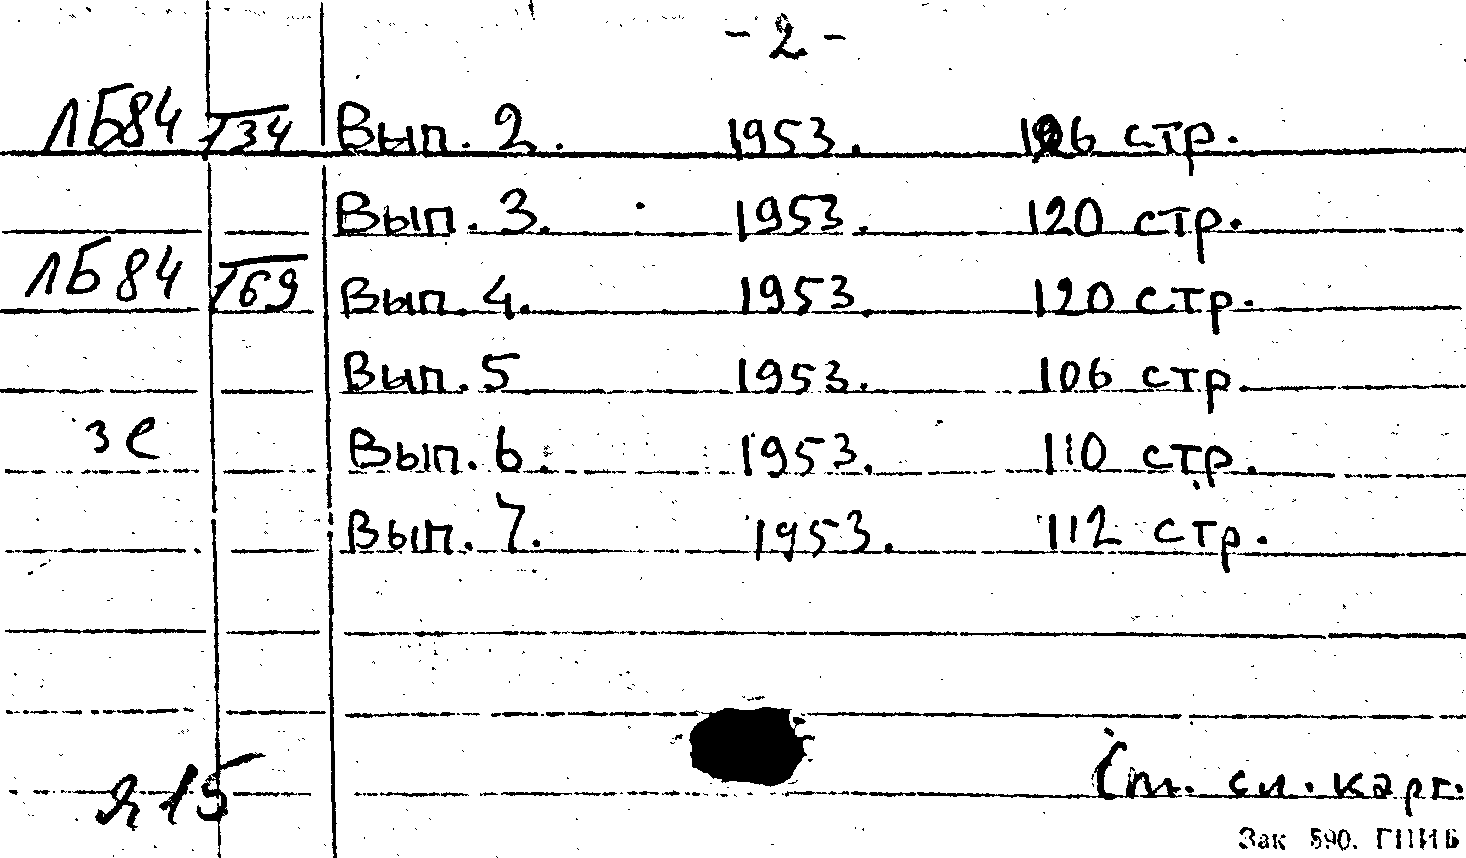 - 2 -
ЛБ84 /134 Вып. 2. 1953. 106 стр.
Вып. 3. 1953. 120 стр.
ЛБ84 /169 Вып. 4. 1953 120 стр.
Вып. 5 1953. 106 стр.
зе Вып. 6. 1953. 110 стр.
Вып. 7. 1953. 112 стр.
См. сл. карт.
Я15
Зак 590. ГПИБ